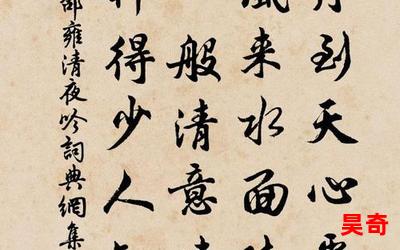 到天心
風来水面
般清意
得少人
邵雍清夜吟詞典網集
昊奇